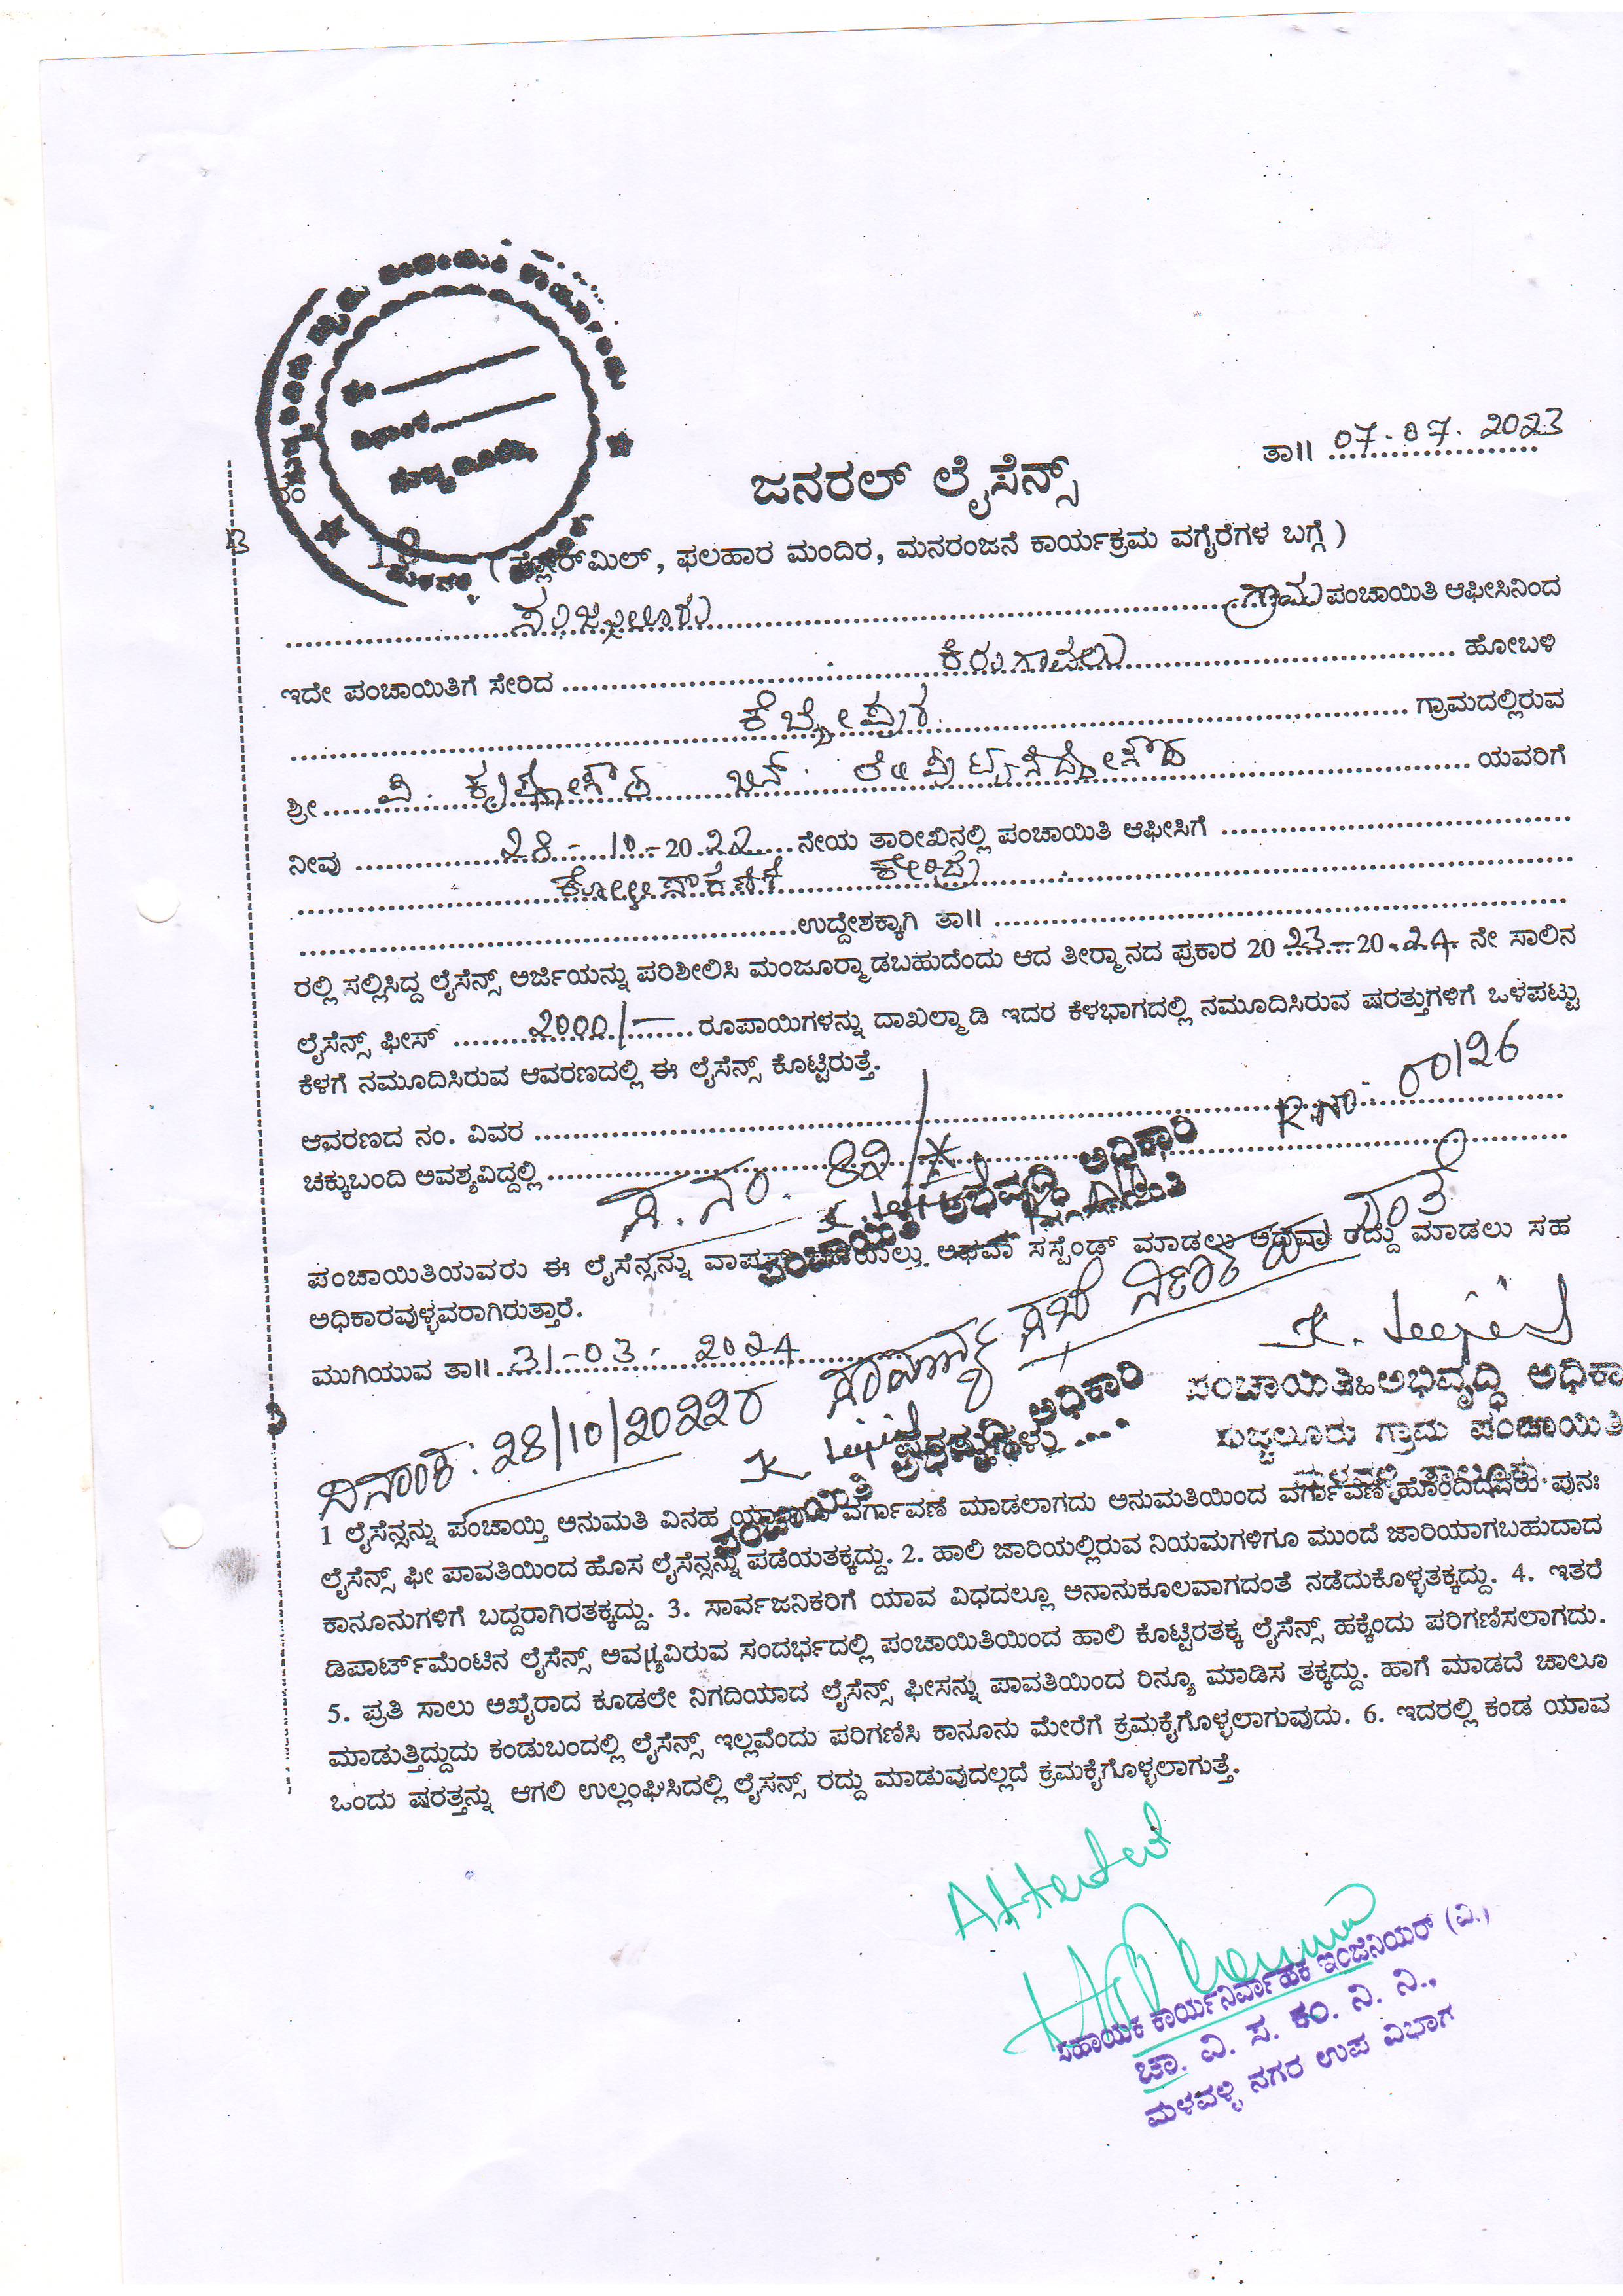 ತಾ॥ 07-07-2023
ಜನರಲ್ ಲೈಸೆನ್ಸ್
( ಫ್ಲೋರ್‌ಮಿಲ್, ಫಲಹಾರ ಮಂದಿರ, ಮನರಂಜನೆ ಕಾರ್ಯಕ್ರಮ ವಗೈರೆಗಳ ಬಗ್ಗೆ )
ಗ್ರಾಮ ಪಂಚಾಯಿತಿ ಆಫೀಸಿನಿಂದ
ಇದೇ ಪಂಚಾಯಿತಿಗೆ ಸೇರಿದ ಕಿರುಗಾವಲು ಹೋಬಳಿ
ಗ್ರಾಮದಲ್ಲಿರುವ
ಶ್ರೀ ವಿ. ಕೃಷ್ಣೇಗೌಡ ಬಿನ್. ಲೇ ಪುಟ್ಟಸಿದ್ದೇಗೌಡ ಯವರಿಗೆ
ನೀವು 28-10-2022 ನೇಯ ತಾರೀಖಿನಲ್ಲಿ ಪಂಚಾಯಿತಿ ಆಫೀಸಿಗೆ
ಕೋಳಿ ಸಾಕಣಿಕೆ ಕೇಂದ್ರ
ಉದ್ದೇಶಕ್ಕಾಗಿ ತಾ॥
ರಲ್ಲಿ ಸಲ್ಲಿಸಿದ್ದ ಲೈಸೆನ್ಸ್ ಅರ್ಜಿಯನ್ನು ಪರಿಶೀಲಿಸಿ ಮಂಜೂರ್‍ಮಾಡಬಹುದೆಂದು ಆದ ತೀರ್‍ಮಾನದ ಪ್ರಕಾರ 2023-2024 ನೇ ಸಾಲಿನ
ಲೈಸೆನ್ಸ್ ಫೀಸ್ 2000/- ರೂಪಾಯಿಗಳನ್ನು ದಾಖಲ್ಮಾಡಿ ಇದರ ಕೆಳಭಾಗದಲ್ಲಿ ನಮೂದಿಸಿರುವ ಷರತ್ತುಗಳಿಗೆ ಒಳಪಟ್ಟು
ಕೆಳಗೆ ನಮೂದಿಸಿರುವ ಆವರಣದಲ್ಲಿ ಈ ಲೈಸೆನ್ಸ್ ಕೊಟ್ಟಿರುತ್ತೆ.
R.NO: 00126
ಆವರಣದ ನಂ. ವಿವರ
ಚಕ್ಕುಬಂದಿ ಅವಶ್ಯವಿದ್ದಲ್ಲಿ
ಪಂಚಾಯಿತಿ ಅಭಿವೃದ್ಧಿ ಅಧಿಕಾರಿ
ಪಂಚಾಯಿತಿಯವರು ಈ ಲೈಸೆನ್ಸನ್ನು ವಾಪಸ್ ಪಡೆಯಲು ಅಥವಾ ಸಸ್ಪೆಂಡ್ ಮಾಡಲು ಅಥವಾ ರದ್ದು ಮಾಡಲು ಸಹ
ಅಧಿಕಾರವುಳ್ಳವರಾಗಿರುತ್ತಾರೆ.
ಮುಗಿಯುವ ತಾ॥ 31-03-2024
ದಿನಾಂಕ: 28/10/2022ರ ಸಾಮಾನ್ಯ ಸಭೆ ನಿರ್ಣಯದಂತೆ
ಪಂಚಾಯಿತಿ ಅಭಿವೃದ್ಧಿ ಅಧಿಕಾ
ಗ್ರಾಮ ಪಂಚಾಯಿತಿ
ಮಳವಳ್ಳಿ ತಾಲೂಕು.
ಷರತ್ತುಗಳು
1 ಲೈಸೆನ್ಸನ್ನು ಪಂಚಾಯ್ತಿ ಅನುಮತಿ ವಿನಹ ಯಾರಿಗೂ ವರ್ಗಾವಣೆ ಮಾಡಲಾಗದು ಅನುಮತಿಯಿಂದ ವರ್ಗಾವಣೆ ಹೊಂದಿದವರು ಪುನಃ
ಲೈಸೆನ್ಸ್ ಫೀ ಪಾವತಿಯಿಂದ ಹೊಸ ಲೈಸೆನ್ಸನ್ನು ಪಡೆಯತಕ್ಕದ್ದು. 2. ಹಾಲಿ ಜಾರಿಯಲ್ಲಿರುವ ನಿಯಮಗಳಿಗೂ ಮುಂದೆ ಜಾರಿಯಾಗಬಹುದಾದ
ಕಾನೂನುಗಳಿಗೆ ಬದ್ದರಾಗಿರತಕ್ಕದ್ದು. 3. ಸಾರ್ವಜನಿಕರಿಗೆ ಯಾವ ವಿಧದಲ್ಲೂ ಅನಾನುಕೂಲವಾಗದಂತೆ ನಡೆದುಕೊಳ್ಳತಕ್ಕದ್ದು. 4. ಇತರೆ
ಡಿಪಾರ್ಟ್‌ಮೆಂಟಿನ ಲೈಸೆನ್ಸ್ ಅವಶ್ಯವಿರುವ ಸಂದರ್ಭದಲ್ಲಿ ಪಂಚಾಯಿತಿಯಿಂದ ಹಾಲಿ ಕೊಟ್ಟಿರತಕ್ಕ ಲೈಸೆನ್ಸ್ ಹಕ್ಕೆಂದು ಪರಿಗಣಿಸಲಾಗದು.
5. ಪ್ರತಿ ಸಾಲು ಅಖೈರಾದ ಕೂಡಲೇ ನಿಗದಿಯಾದ ಲೈಸೆನ್ಸ್ ಫೀಸನ್ನು ಪಾವತಿಯಿಂದ ರಿನ್ಯೂ ಮಾಡಿಸ ತಕ್ಕದ್ದು. ಹಾಗೆ ಮಾಡದೆ ಚಾಲೂ
ಮಾಡುತ್ತಿದ್ದುದು ಕಂಡುಬಂದಲ್ಲಿ ಲೈಸೆನ್ಸ್ ಇಲ್ಲವೆಂದು ಪರಿಗಣಿಸಿ ಕಾನೂನು ಮೇರೆಗೆ ಕ್ರಮಕೈಗೊಳ್ಳಲಾಗುವುದು. 6. ಇದರಲ್ಲಿ ಕಂಡ ಯಾವ
ಒಂದು ಷರತ್ತನ್ನು ಆಗಲಿ ಉಲ್ಲಂಘಿಸಿದಲ್ಲಿ ಲೈಸನ್ಸ್ ರದ್ದು ಮಾಡುವುದಲ್ಲದೆ ಕ್ರಮಕೈಗೊಳ್ಳಲಾಗುತ್ತೆ.
Attested
ಸಹಾಯಕ ಕಾರ್ಯನಿರ್ವಾಹಕ ಇಂಜಿನಿಯರ್ (ವಿ.)
ಚಾ. ವಿ. ಸ. ಕಂ. ನಿ. ನಿ.,
ಮಳವಳ್ಳಿ ನಗರ ಉಪ ವಿಭಾಗ